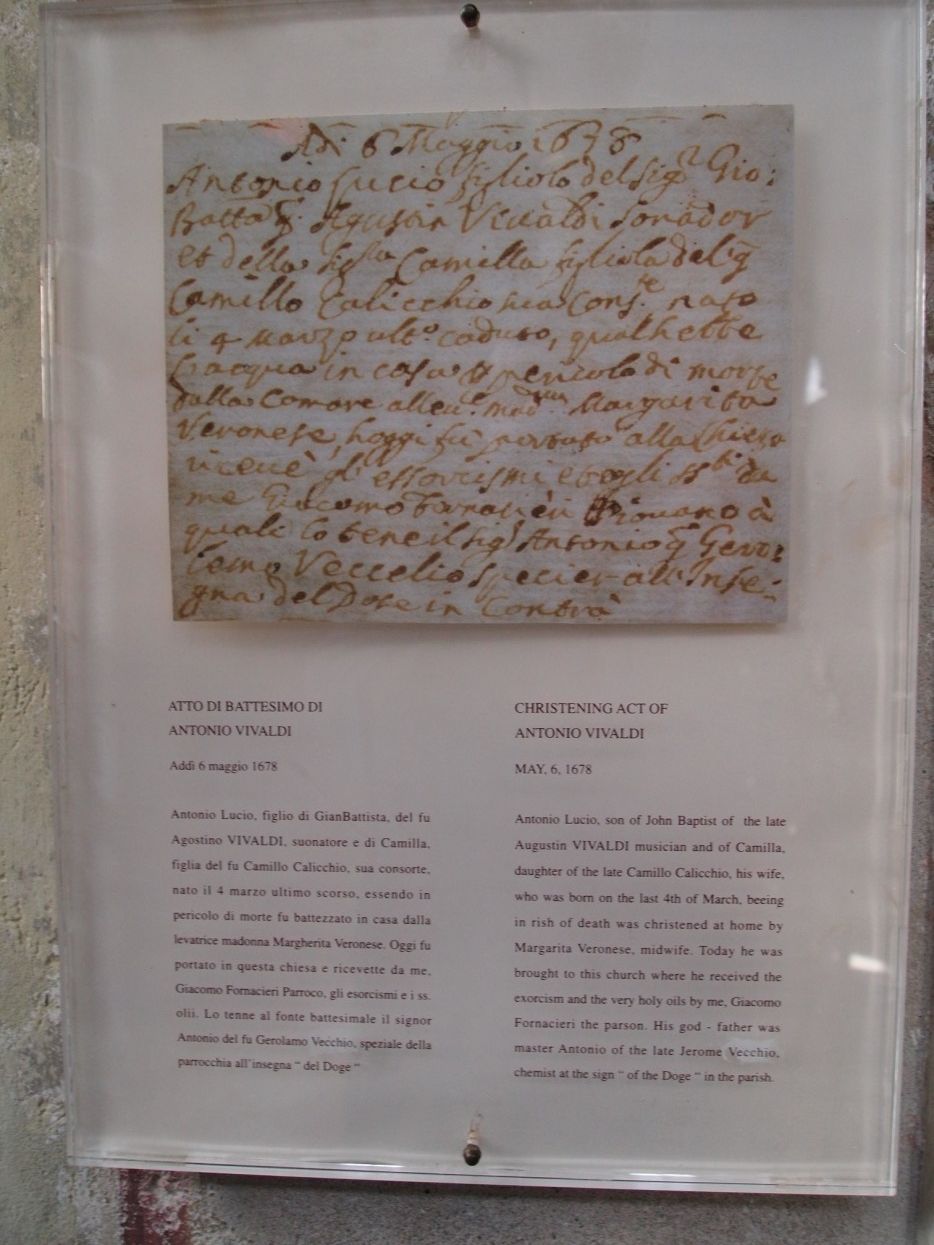 Adi 6 Maggio 1678
Antonio Lucio figliolo del Sigr Gio:
Batta q. Agustin Viualdi Sonador
et della Sigra Camilla figliola del q
Camillo Calicchio sua Conste nato
li 4 Marzo ulto caduto, qual hebbe
l'acqua in casa p pericolo di morte
dalla Comare alleue mad Margarita
Veronese, hoggi fù portato alla Chiesa
riceuè gl'essorcismi et ogli SSti da
me Giacomo Fornacieri Piouano à
quali lo tene il Sigr Antonio q Gero:
lemo Veccelio specier all'Inse=
gna del Dose in Contrà
ATTO DI BATTESIMO DI
ANTONIO VIVALDI
Addì 6 maggio 1678
Antonio Lucio, figlio di GianBattista, del fu
Agostino VIVALDI, suonatore e di Camilla,
figlia del fu Camillo Calicchio, sua consorte,
nato il 4 marzo ultimo scorso, essendo in
pericolo di morte fu battezzato in casa dalla
levatrice madonna Margherita Veronese. Oggi fu
portato in questa chiesa e ricevette da me,
Giacomo Fornacieri Parroco, gli esorcismi e i ss.
olii. Lo tenne al fonte battesimale il signor
Antonio del fu Gerolamo Vecchio, speziale della
parrocchia all'insegna “ del Doge “
CHRISTENING ACT OF
ANTONIO VIVALDI
MAY, 6, 1678
Antonio Lucio, son of John Baptist of the late
Augustin VIVALDI musician and of Camilla,
daughter of the late Camillo Calicchio, his wife,
who was born on the last 4th of March, beeing
in rish of death was christened at home by
Margarita Veronese, midwife. Today he was
brought to this church where he received the
exorcism and the very holy oils by me, Giacomo
Fornacieri the parson. His god - father was
master Antonio of the late Jerome Vecchio,
chemist at the sign “ of the Doge “ in the parish.